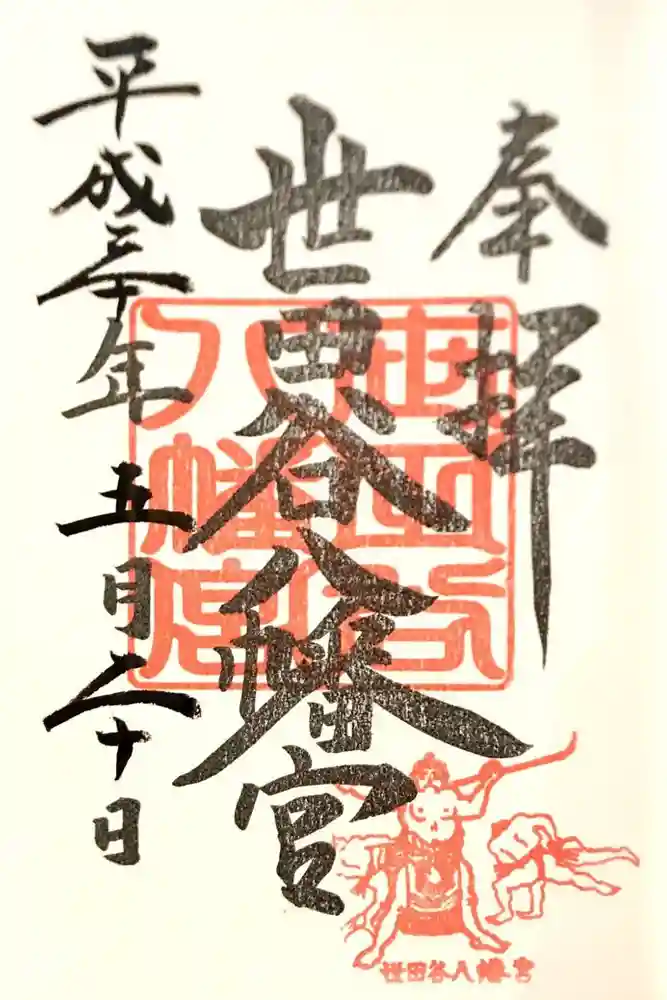 奉拝
世田谷八幡宮
平成三十年五月二十日
世田谷
八幡宮
世田谷八幡宮